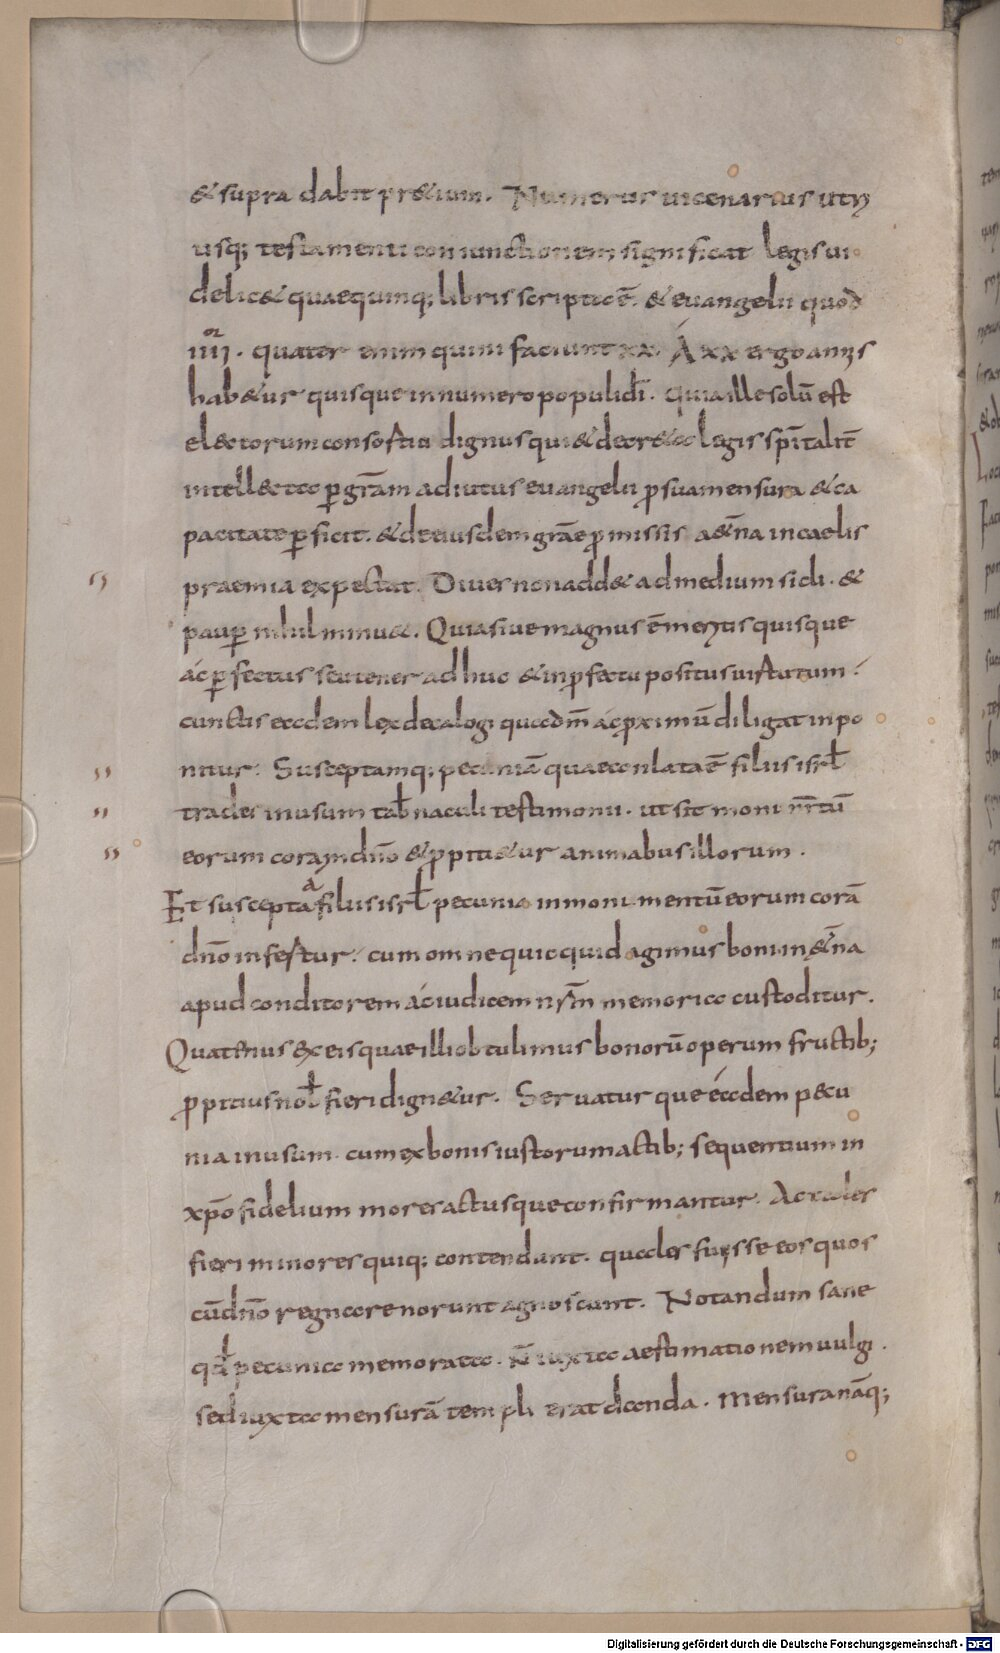 & supra dabit pr&ium. Numerus uicenarius utri
usq; testamenti coniunctionem significat legis ui
delic& quae quinq; libris scripta ē. & euangelii quod
iiii^or. quater enim quini faciunt xx. A xx ergo annis
hab&ur quisque in numero populi dī. Quia ille solū est
electorum consortio dignus qui & decr&a legis spitalit̄
intellecta p̱ grām adiutus euangelii ꝓ sua mensura & ca
pacitate p̱ficit. & de eiusdem grāe ꝓmissis a&̄na in caelis
praemia expectat. Diues non add& ad medium sicli. &
paup̱ nihil minu&. Quia siue magnus ē mentis quisque
ac p̱fectus seu tener adhuc & inp̱fectu positus uirtutum.
cunctis eadem lex decalogi qua dm̄ ac ꝓximū diligat inpo
nitur. Susceptamq; pecuniā quae conlata ē filiis isrł
trades in usum tab̄naculi testimonii. ut sit monimentū
eorum coram dn̄o & ꝓpiti&ur animabus illorum.
Et suscepta a filiis isrł pecunia in monimentū eorum corā
dn̄o infertur. cum omne quicquid agimus boni in &̄na
apud conditorem ac iudicem nr̄m memoria custoditur.
Quatenus ex eis quae illi obtulimus bonorū operum fructib;
ꝓpitius nobł fieri dign&ur. Seruaturque eadem pecu
nia in usum. cum ex bonis iustorum actib; sequentium in
xp̄o fidelium mores actusque confirmantur. Ac tales
fieri minores quiq; contendunt. quales fuisse eos quos
cū dn̄o regnare norunt agnoscunt. Notandum sane
qđ pecunia memorata. N̄ iuxta aestimationem uulgi.
sed iuxta mensurā templi erat danda. Mensura nāq;
Digitalisierung gefördert durch die Deutsche Forschungsgemeinschaft - DFG